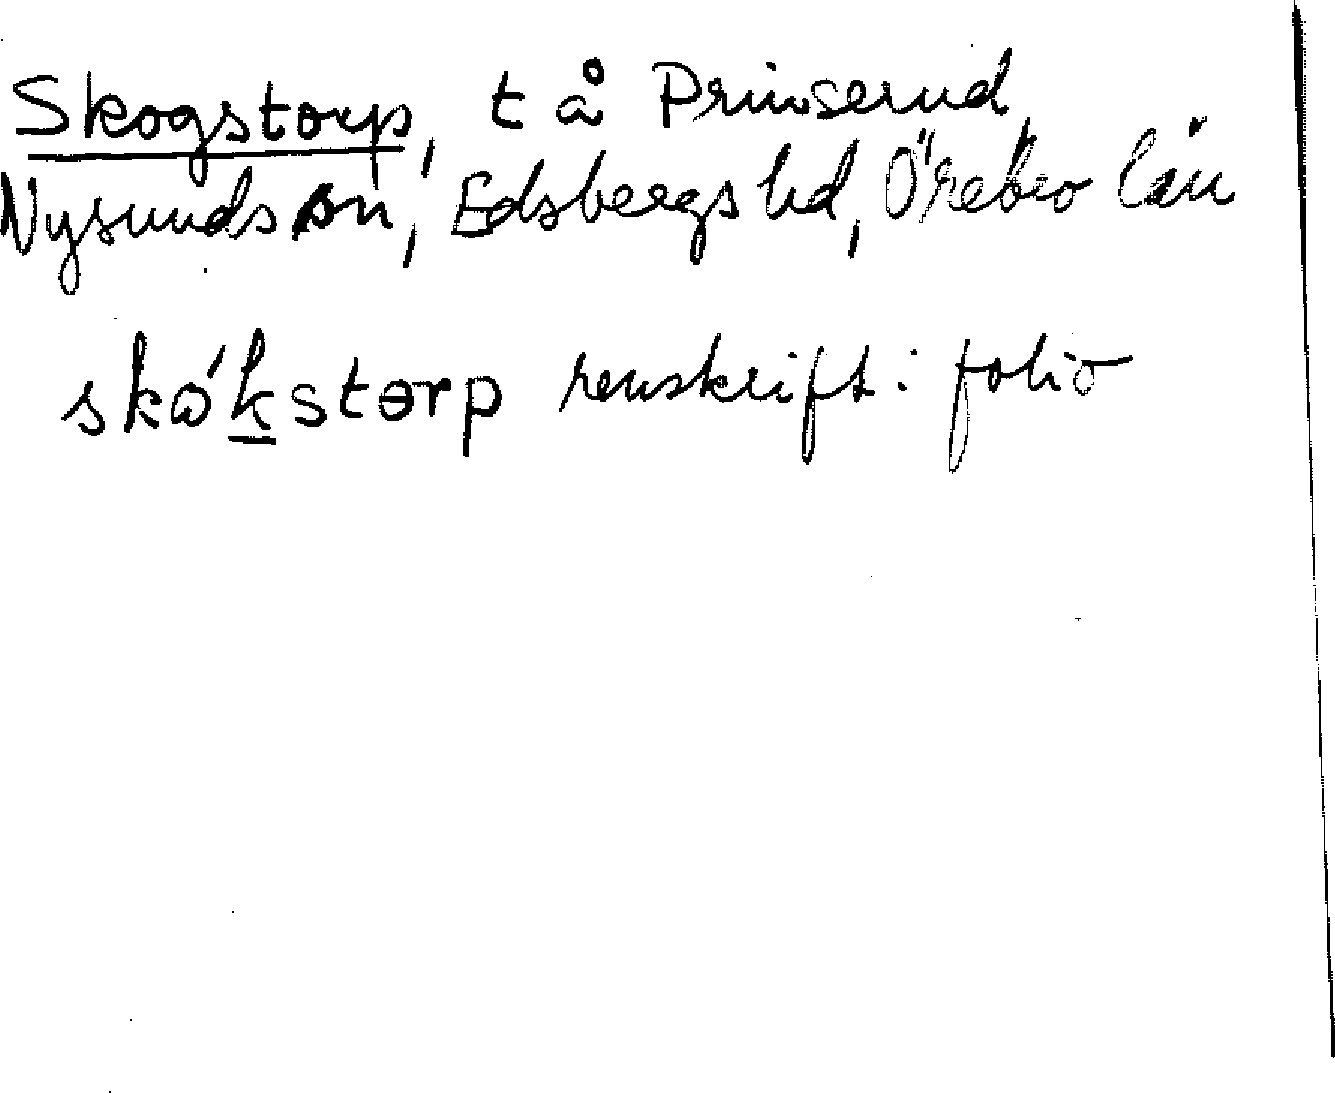 Skogstorp, t å Prinserud
Nysunds sn, Edsbergs hd, Örebro län
skɷ́k̲stərp renskrift: folio